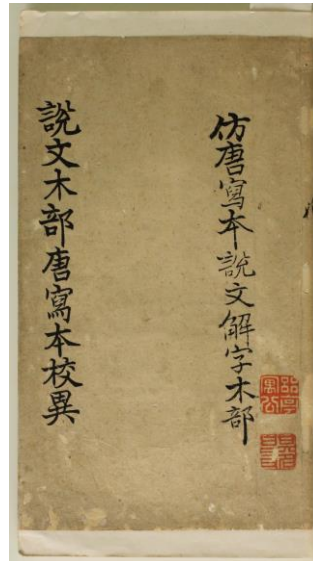 仿唐寫本說文解字木部
說文木部唐寫本校異